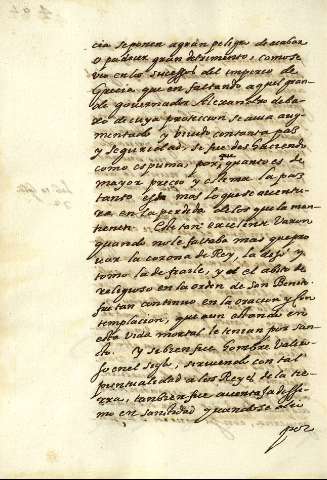 cia se ponen a gran peligro de acabar
o padecer gran detrimento, como se
vio en los sucessos del imperio de
Grecia que en faltando aquel gran
de governador Alexandro deba
xo de cuya proteccion se avia au
mentado y vivido con tanta paz
y seguridad, se fue deshaciendo
como espuma, porque quanto es de
mayor precio y estima la paz
tanto es mas lo que se aventu
ra en la perdida de los que la man
tienen. Este tan excelente Varon
quando no le faltaba mas que pro
var la corona de Rey, la dejó y
tomo la de frayle, y el abito de
religioso en la orden de San Benito.
fue tan continuo en la oracion y con
templacion, que aun estando en
esta vida mortal le tenian por san
to. Y si bien fue hombre Valero
so en el siglo, sirviendo con tal
puntualidad a los Reyes de la tie
rra, tambien fue aventajadissi
mo en santidad y quando se
por